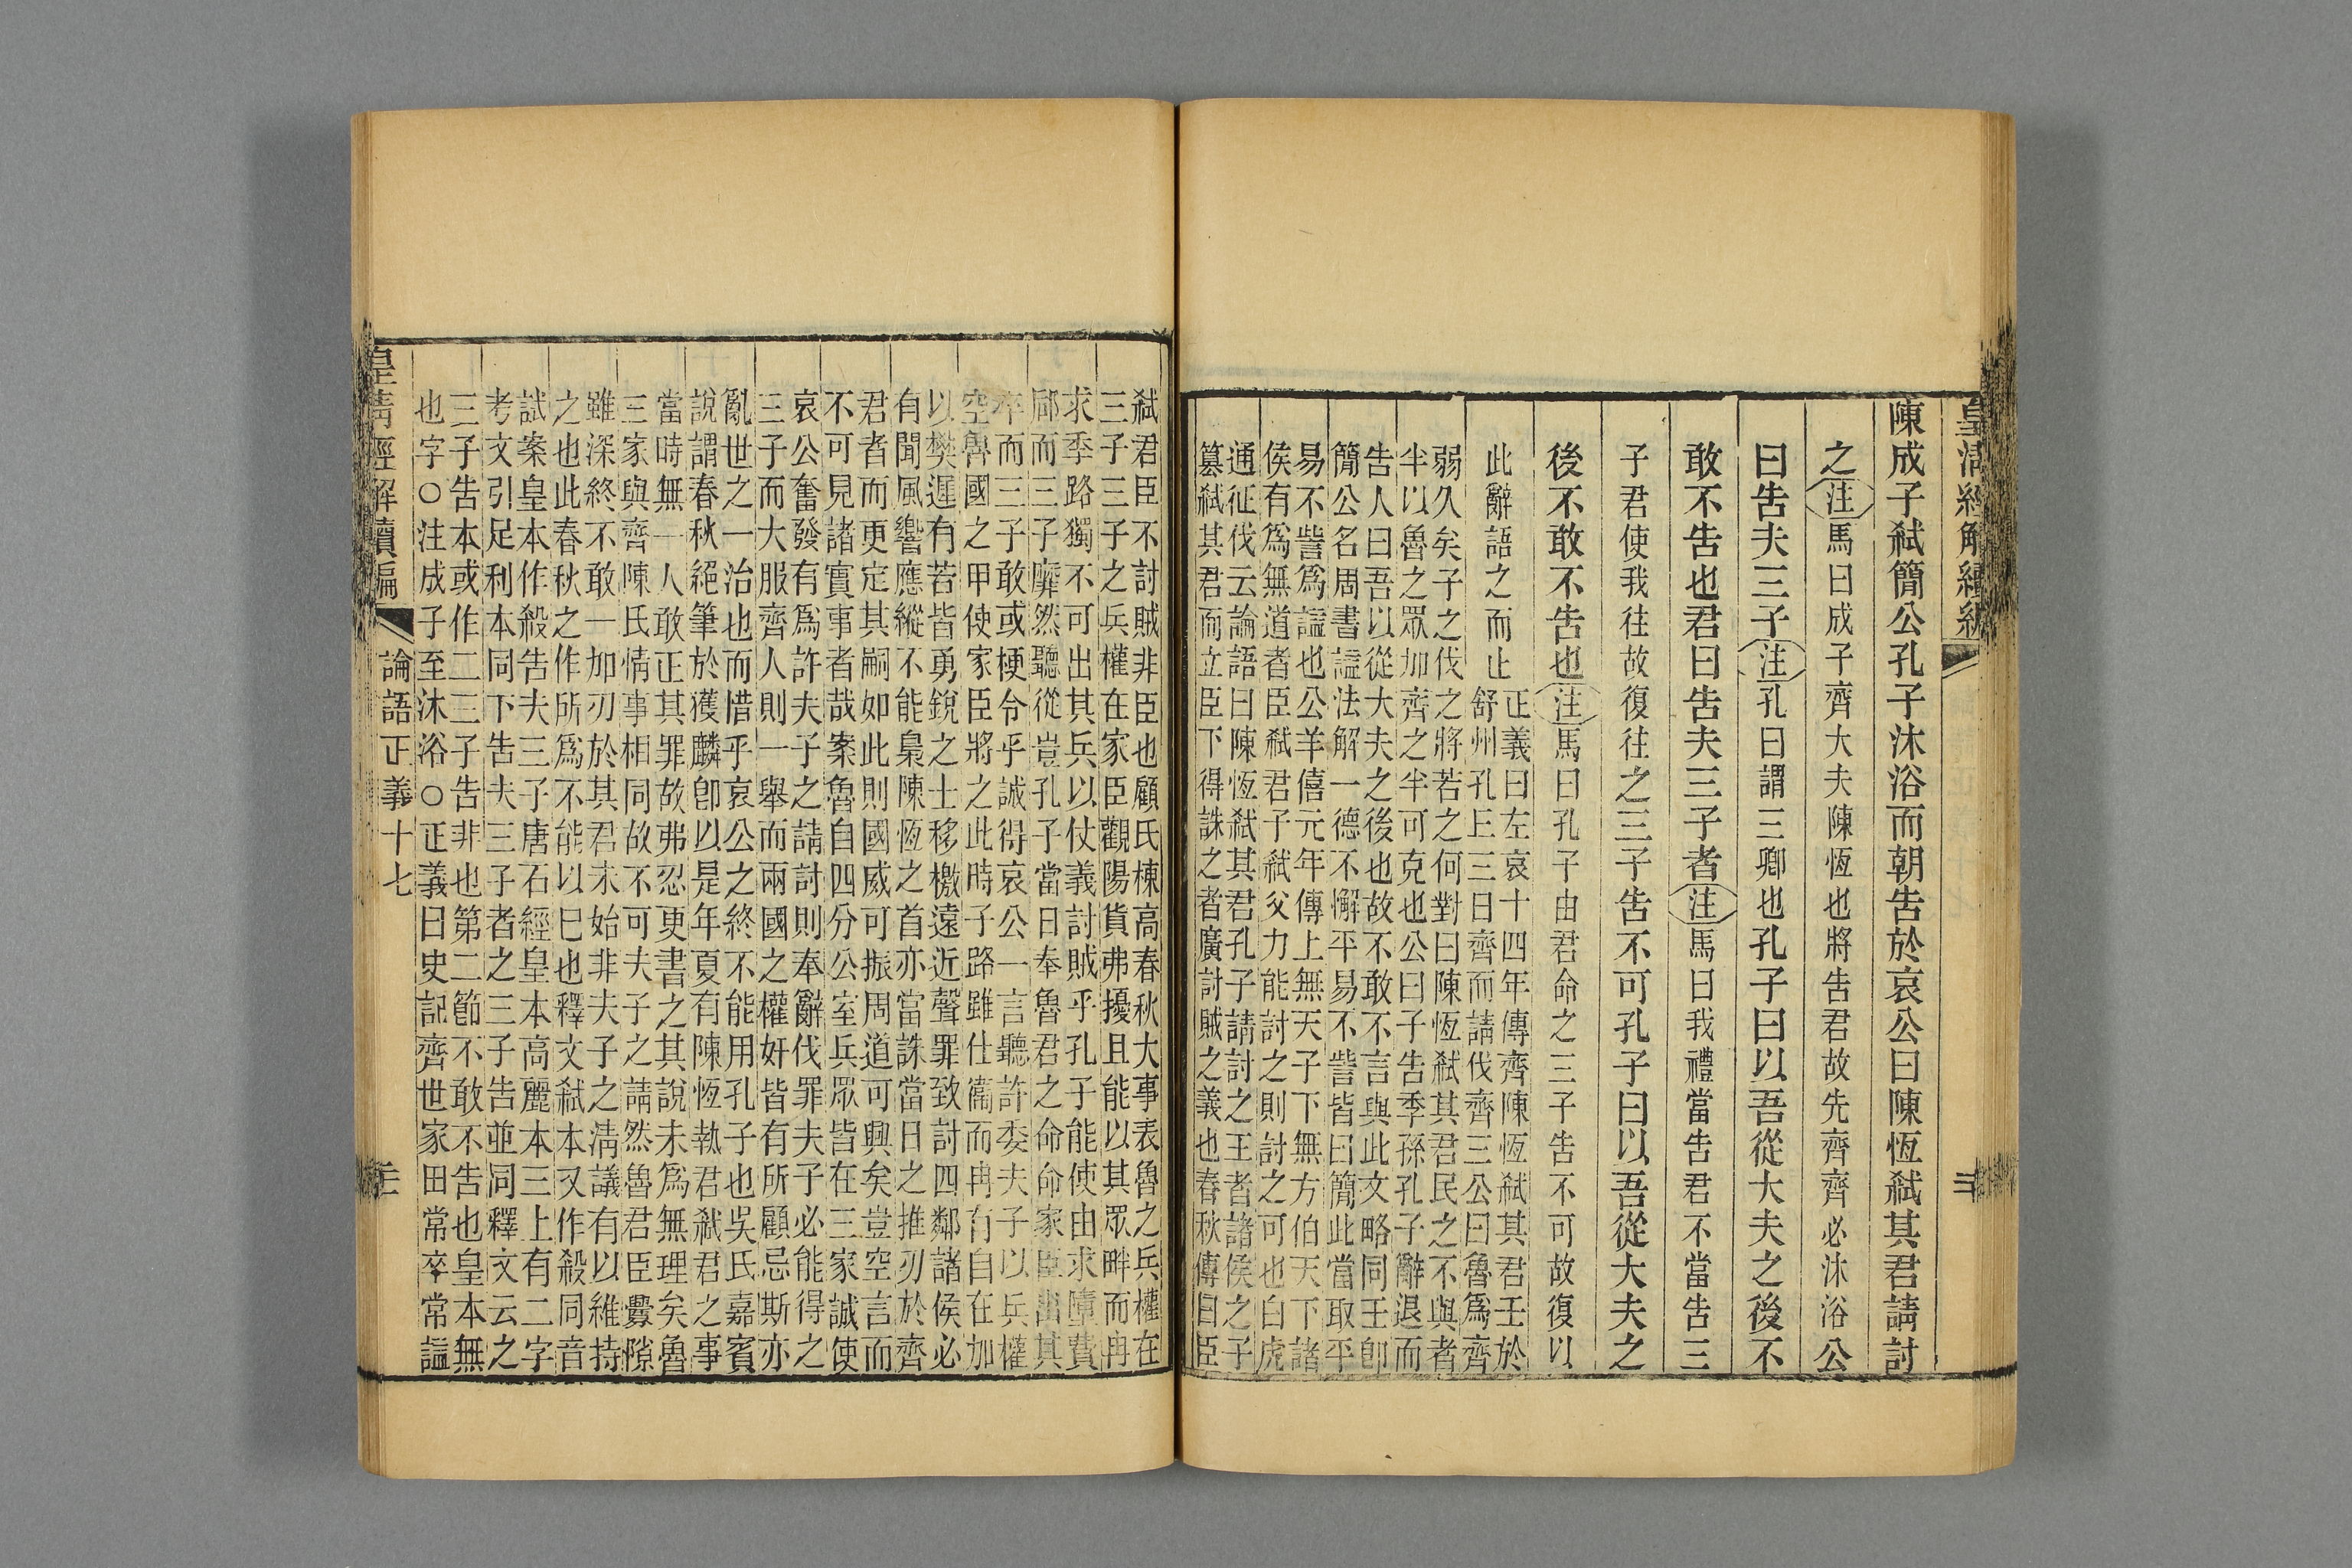 皇清經解續編
陳成子弒簡公孔子沐浴而朝告於哀公曰陳恆弒其君請討
之注馬曰成子齊大夫陳恆也將告君故先齊齊必沐浴公
曰告夫三子注孔曰謂三卿也孔子曰以吾從大夫之後不
敢不告也君曰告夫三子者注馬曰我禮當告君不當告三
子君使我往故復往之三子告不可孔子曰以吾從大夫之
後不敢不告也注馬曰孔子由君命之三子告不可故復以
此辭語之而止
正義曰左哀十四年傳齊陳恆弒其君壬於
舒州孔丘三日齊而請伐齊三公曰魯爲齊
弱久矣子之伐之將若之何對曰陳恆弒其君民之不與者
半以魯之眾加齊之半可克也公曰子告季孫孔子辭退而
告人曰吾以從大夫之後也故不敢不言與此文略同王卽
簡公名周書諡法解一德不懈平易不訾皆曰簡此當取平
易不訾爲諡也公羊僖元年傳上無天子下無方伯天下諸
侯有爲無道者臣弒君子弒父力能討之則討之可也白虎
通征伐云論語曰陳恆弒其君孔子請討之王者諸侯之子
篡弒其君而立臣下得誅之者廣討賊之義也春秋傳曰臣
弒君臣不討賊非臣也顧氏棟高春秋大事表魯之兵權在
三子三子之兵權在家臣觀陽貨弗擾且能以其眾畔而冉
求季路獨不可出其兵以仗義討賊乎孔子能使由求墮費
郈而三子靡然聽從豈孔子當日奉魯君之命命家臣出其
卒而三子敢或梗令乎誠得哀公一言聽許委夫子以兵權
空魯國之甲使家臣將之此時子路雖仕衞而冉有自在加
以樊遲有若皆勇銳之士移檄遠近聲罪致討四鄰諸侯必
有聞風響應縱不能梟陳恆之首亦當誅當日之推刃於齊
君者而更定其嗣如此則國威可振周道可興矣豈空言而
不可見諸實事者哉案魯自四分公室兵眾皆在三家誠使
哀公奮發有爲許夫子之請討則奉辭伐罪夫子必能得之
三子而大服齊人則一舉而兩國之權奸皆有所顧忌斯亦
亂世之一治也而惜乎哀公之終不能用孔子也吳氏嘉賓
說謂春秋絕筆於獲麟卽以是年夏有陳恆執君弒君之事
當時無一人敢正其罪故弗忍更書之其說未爲無理矣魯
三家與齊陳氏情事相同故不可夫子之請然魯君臣釁隙
雖深終不敢一加刃於其君未始非夫子之淸議有以維持
之也此春秋之作所爲不能以巳也釋文弒本又作殺同音
試案皇本作殺告夫三子唐石經皇本高麗本三上有二字
考文引足利本同下告夫三子者之三子告並同釋文云之
三子告本或作二三子告非也第二節不敢不告也皇本無
也字○注成子至沐浴○正義曰史記齊世家田常卒常諡
皇清經解續編
論語正義十七